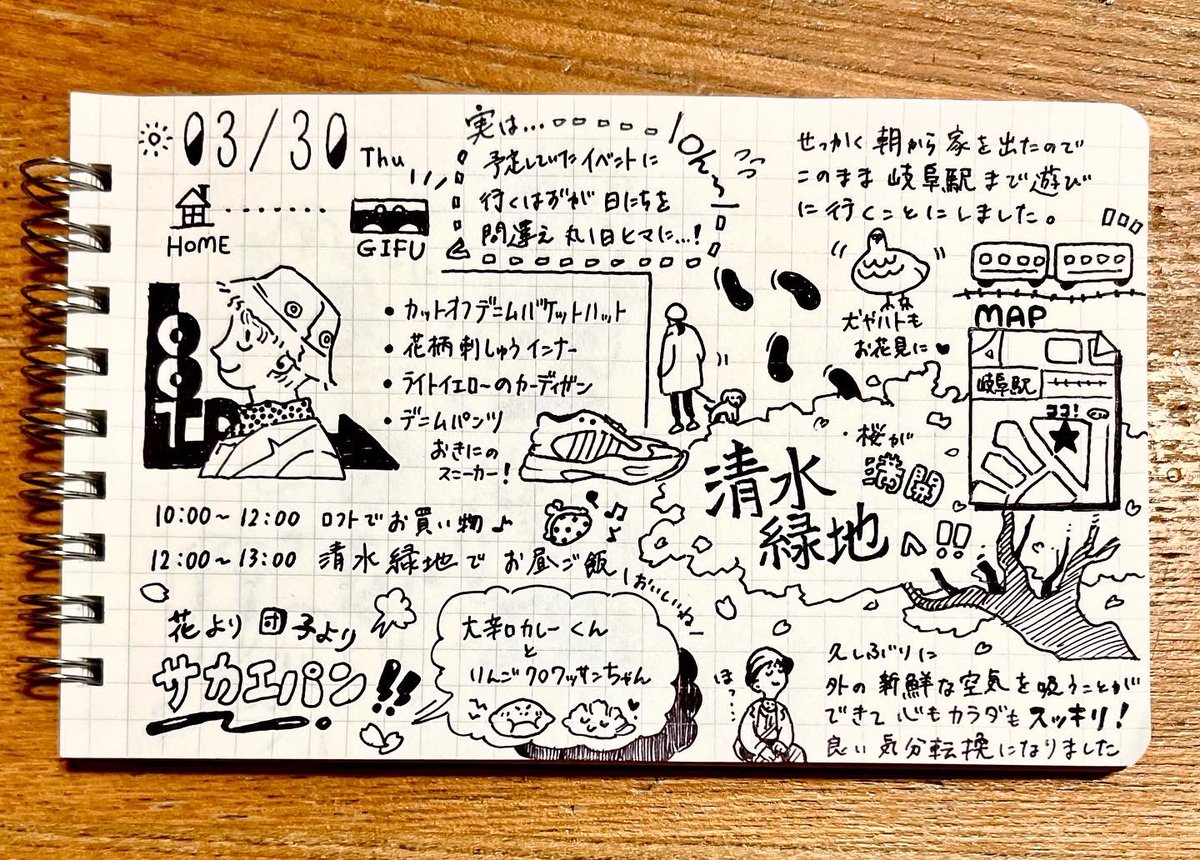 03/30 Thu
HOME
GIFU
実は…
予定していたイベントに
行くはずが 日にちを
間違え 丸1日ヒマに…!
せっかく朝から家を出たので
このまま 岐阜駅まで遊び
に行くことにしました。
OOTD
・カットオフデニムバケットハット
・花柄刺しゅうインナー
・ライトイエローのカーディガン
・デニムパンツ
おきにの
スニーカー!
犬やハトも
お花見に
MAP
岐阜駅
ココ!
清水
緑地へ!!
・桜が
満開
10:00~12:00 ロフトでお買い物♪
12:00~13:00 清水緑地でお昼ご飯
おいしいねー
花より団子より
サカエパン!!
大辛口カレーくん
と
りんごクロワッサンちゃん
ほっ…
久しぶりに
外の新鮮な空気を吸うことが
できて心もカラダもスッキリ!
良い気分転換になりました